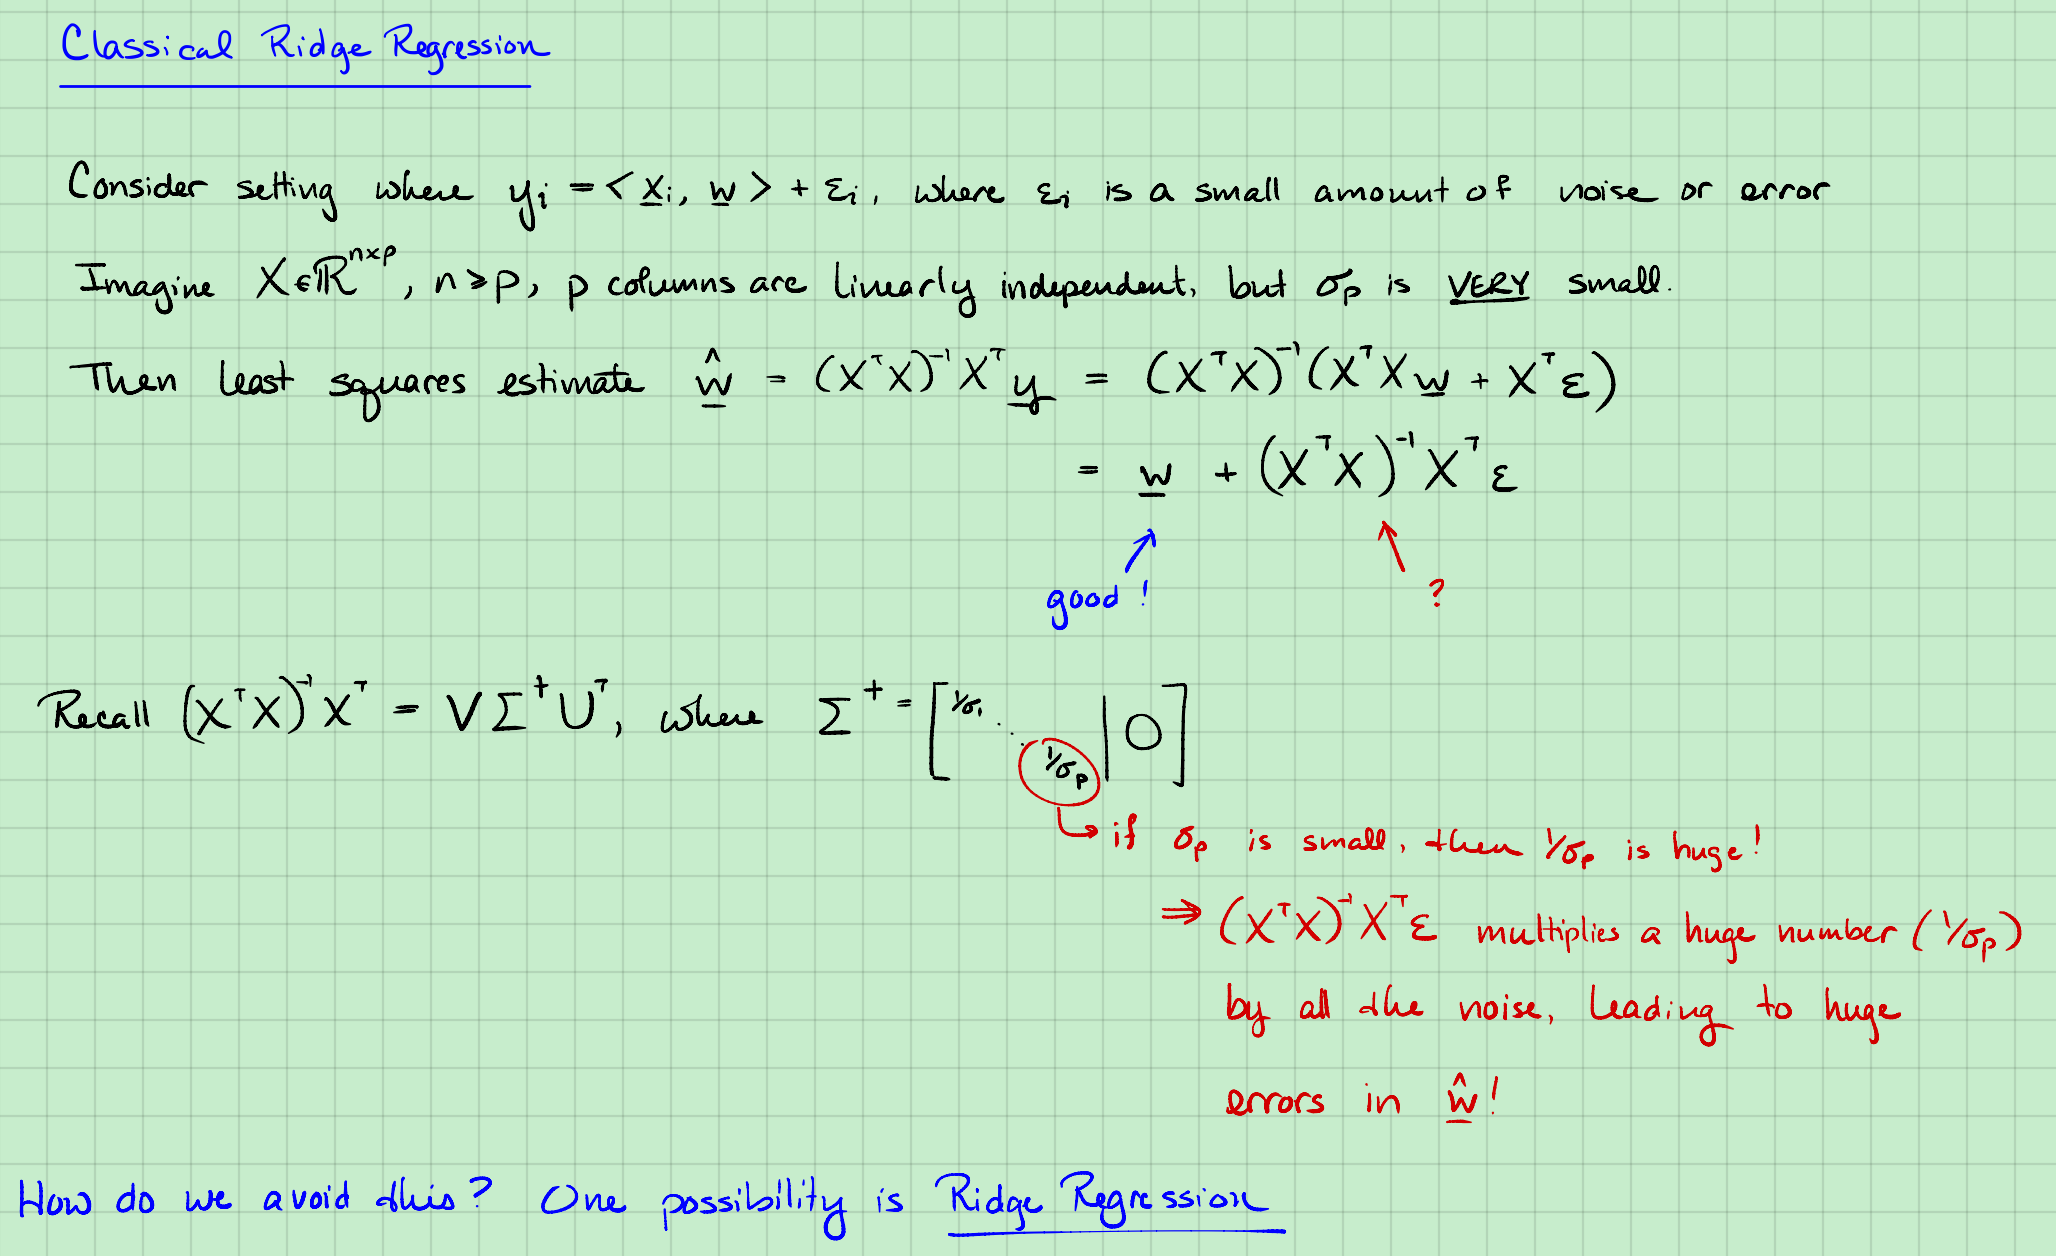 Classical Ridge Regression
Consider setting where yᵢ = <x̲ᵢ, w̲> + εᵢ, where εᵢ is a small amount of noise or error
Imagine X∈ℝⁿˣᵖ, n≥p, p columns are linearly independent, but σₚ is VERY small.
Then least squares estimate ŵ̲ = (XᵀX)⁻¹Xᵀy̲ = (XᵀX)⁻¹(XᵀXw̲ + Xᵀε)
= w̲ + (XᵀX)⁻¹Xᵀε
good! ?
Recall (XᵀX)⁻¹Xᵀ = VΣ⁺Uᵀ, where Σ⁺ = [1/σ₁ ⋱ 1/σₚ | 0]
if σₚ is small, then 1/σₚ is huge!
⇒ (XᵀX)⁻¹Xᵀε multiplies a huge number (1/σₚ)
by all the noise, leading to huge
errors in ŵ̲!
How do we avoid this? One possibility is Ridge Regression